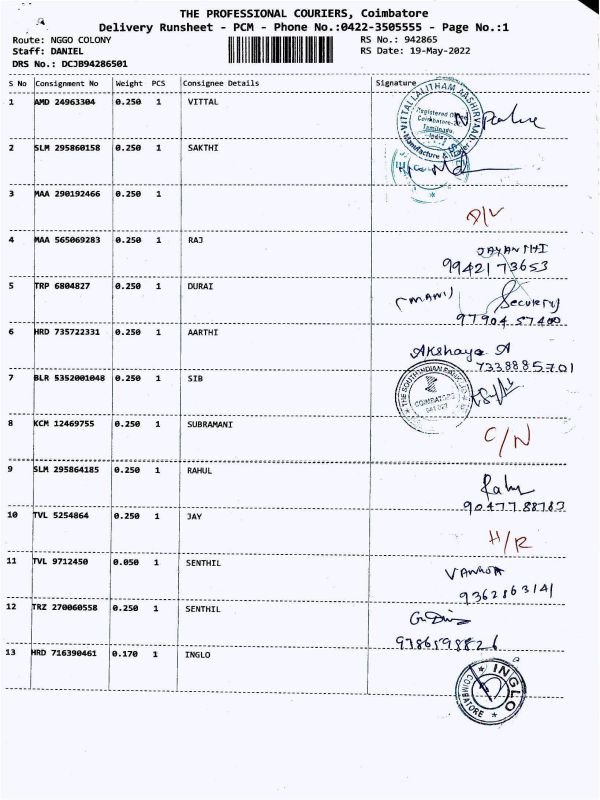 THE PROFESSIONAL COURIERS, Coimbatore
Delivery Runsheet - PCM - Phone No.:0422-3505555 - Page No.:1
Route: NGGO COLONY RS No.: 942865
Staff: DANIEL RS Date: 19-May-2022
DRS No.: DCJB94286501
S No Consignment No Weight PCS Consignee Details Signature
1 AMD 24963304 0.250 1 VITTAL
VITTAL LALITHAM AASHIRVAAD
Registered Office
Coimbatore
Tamilnadu
India
Manufacture & Trader
2 SLM 295860158 0.250 1 SAKTHI
3 MAA 290192466 0.250 1
4 MAA 565069283 0.250 1 RAJ
JAYANTHI
9942173653
5 TRP 6804827 0.250 1 DURAI
(MANI) Security
9790457400
6 HRD 735722331 0.250 1 AARTHI
Akshaya A
7338885701
7 BLR 5352001048 0.250 1 SIB
THE SOUTH INDIAN BANK
COIMBATORE
8 KCM 12469755 0.250 1 SUBRAMANI
C/N
9 SLM 295864185 0.250 1 RAHUL
10 TVL 5254864 0.250 1 JAY
H/R
11 TVL 9712450 0.050 1 SENTHIL
9362863141
12 TRZ 270060558 0.250 1 SENTHIL
9786598826
13 HRD 716390461 0.170 1 INGLO
INGLO
COIMBATORE